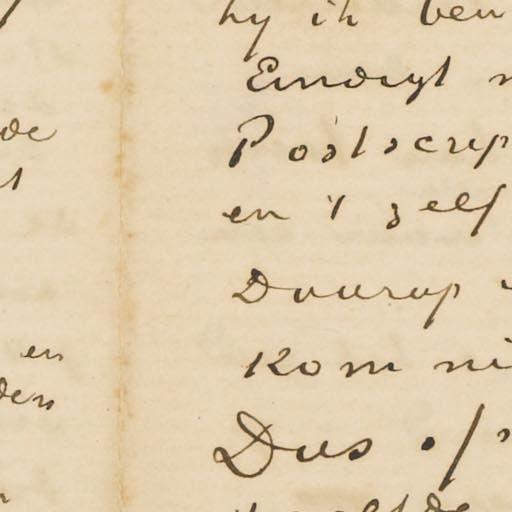 de
t
en
den
hy ik ben
Eindigt
Postscrip
en 't zelf
Daarop
Kom ni
Dus of